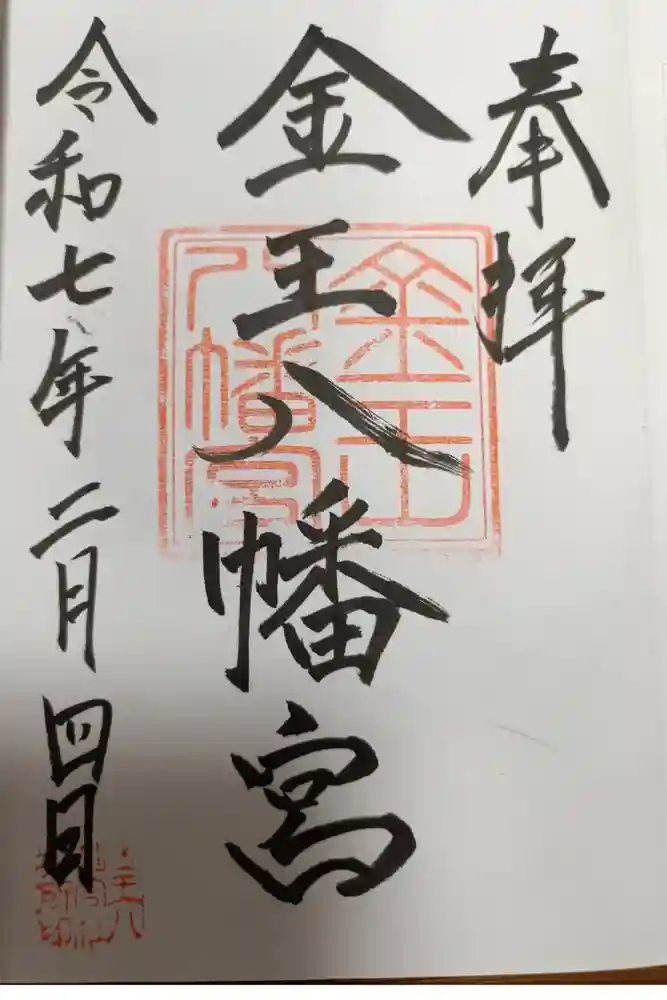 奉拝
金王八幡宮
令和七年二月四日
金王八幡宮